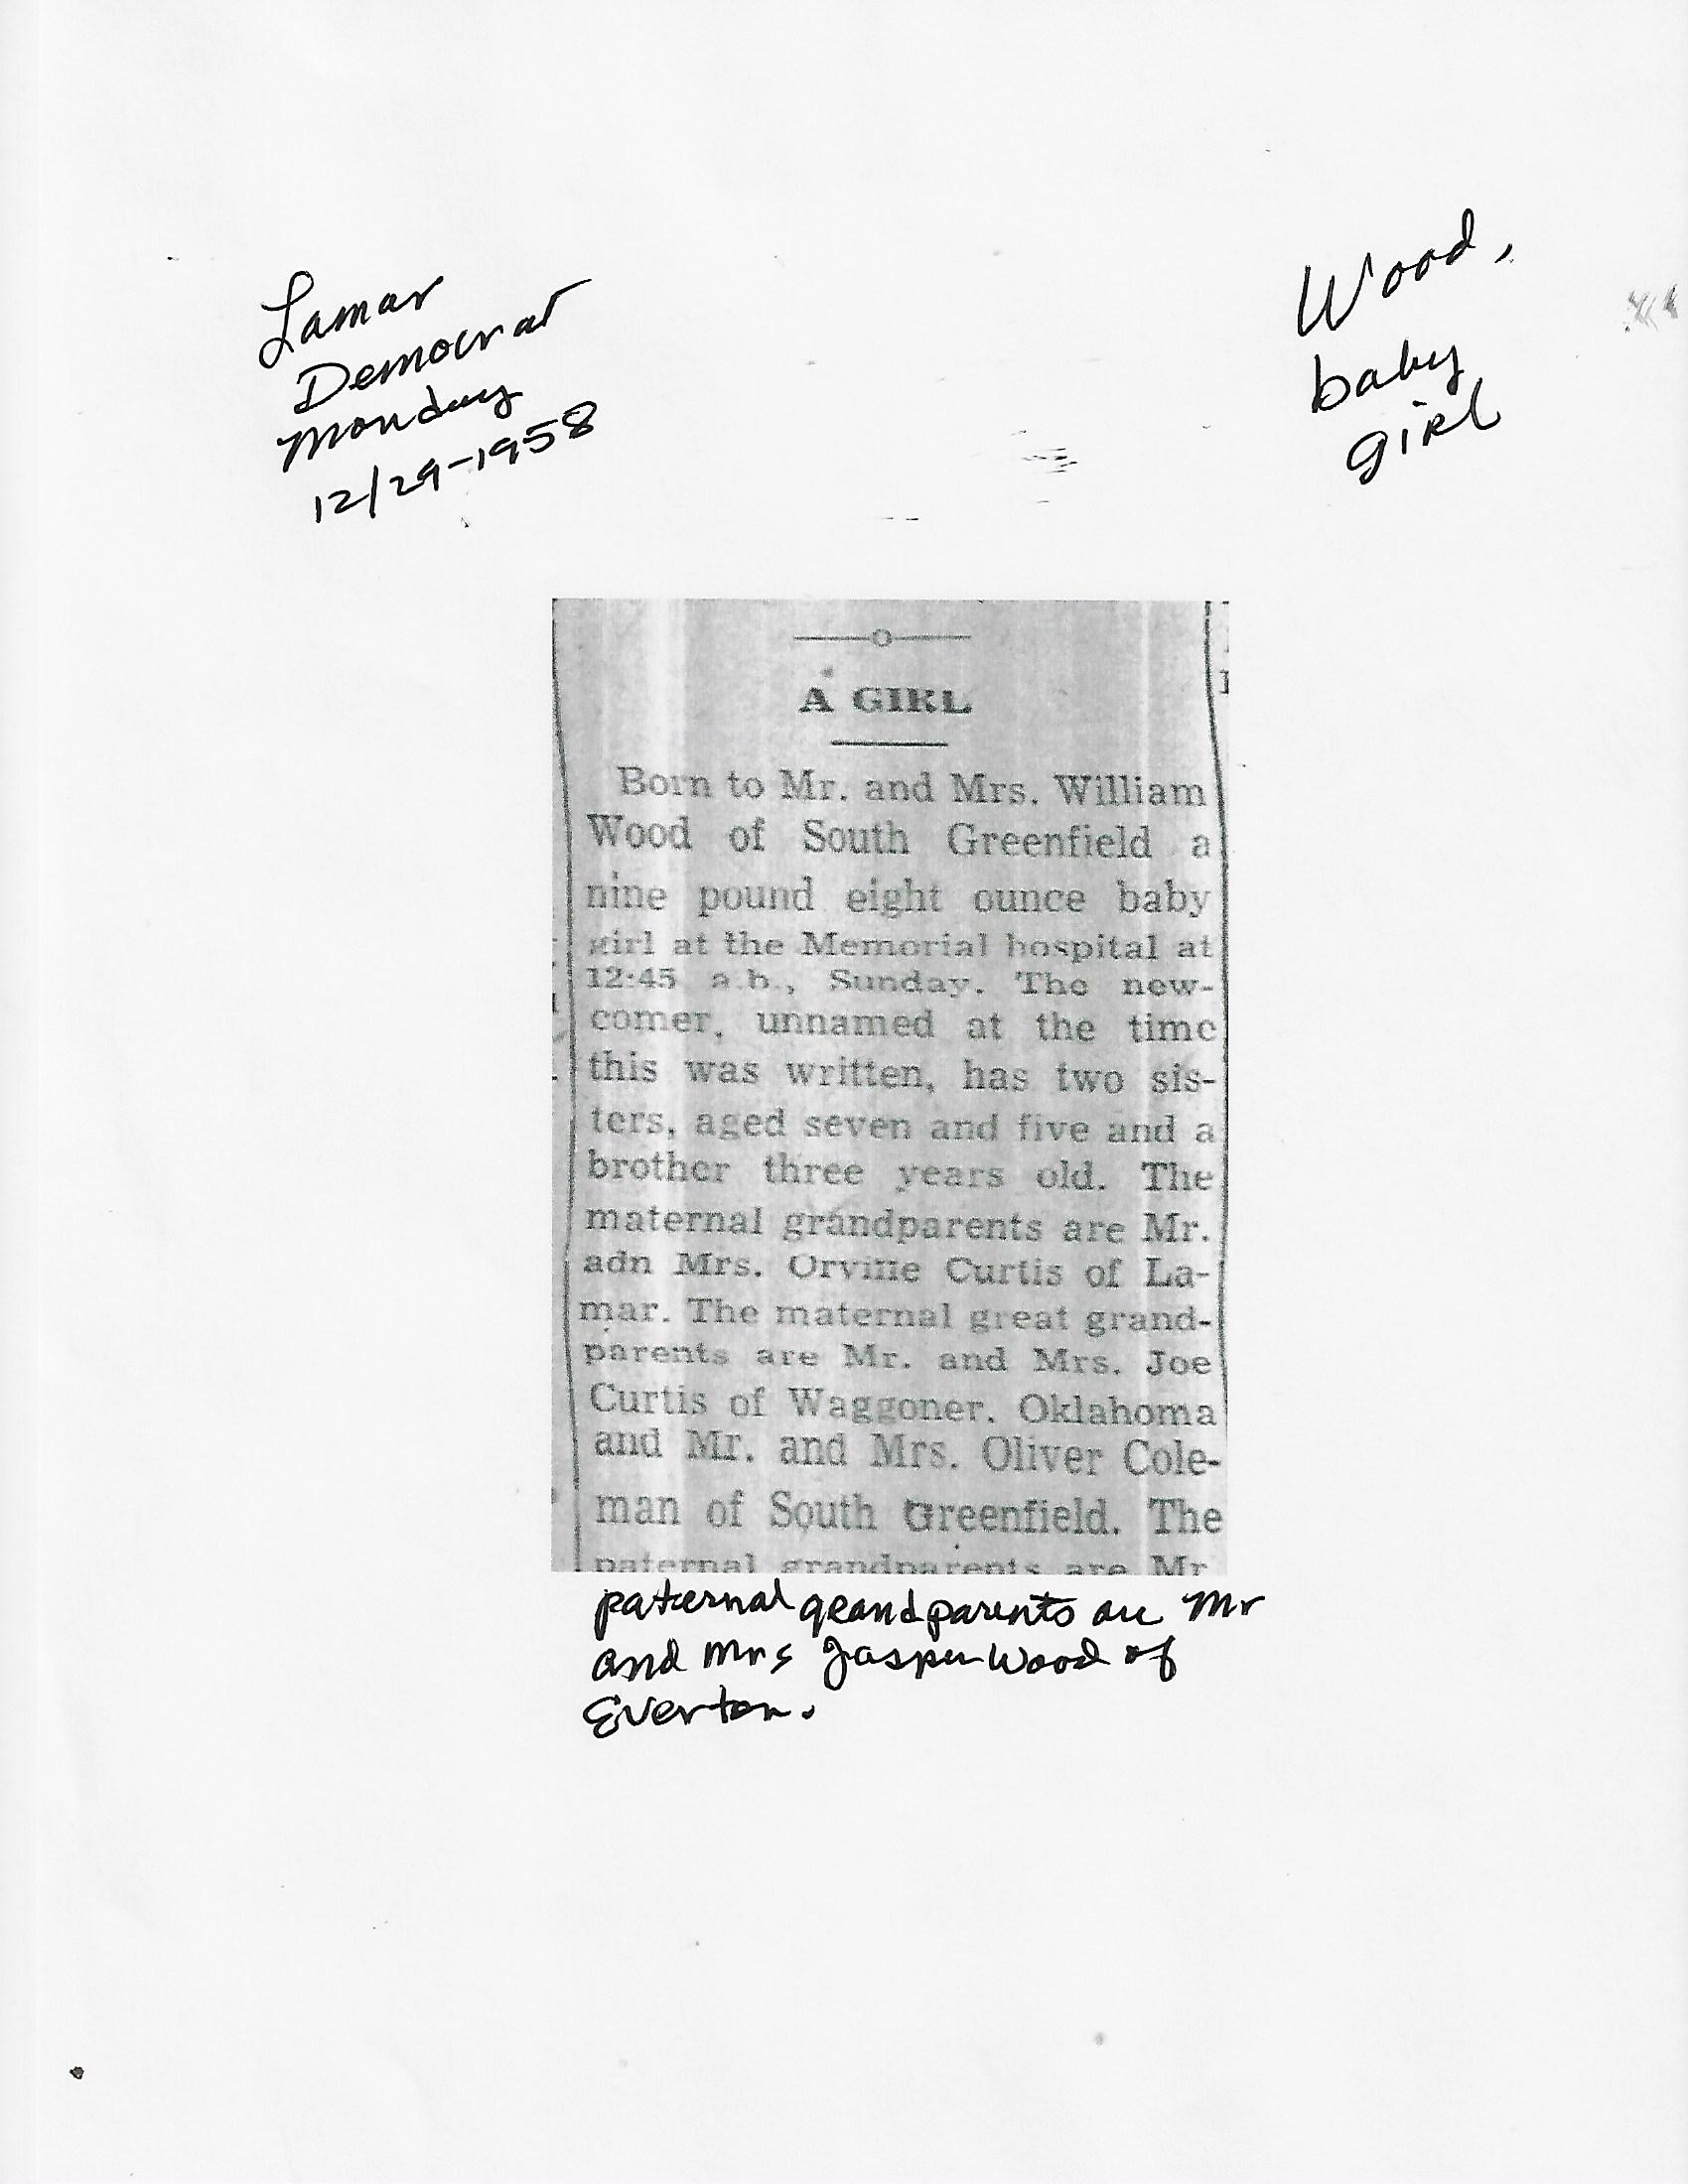 Lamar
Democrat
Monday
12/29-1958
Wood,
baby
girl
A GIRL
Born to Mr. and Mrs. William
Wood of South Greenfield a
nine pound eight ounce baby
girl at the Memorial hospital at
12:45 a.b., Sunday. The new-
comer, unnamed at the time
this was written, has two sis-
ters, aged seven and five and a
brother three years old. The
maternal grandparents are Mr.
adn Mrs. Orville Curtis of La-
mar. The maternal great grand-
parents are Mr. and Mrs. Joe
Curtis of Waggoner, Oklahoma
and Mr. and Mrs. Oliver Cole-
man of South Greenfield. The
paternal grandparents are Mr.
paternal grandparents are Mr
and Mrs Jasper Wood of
Everton.